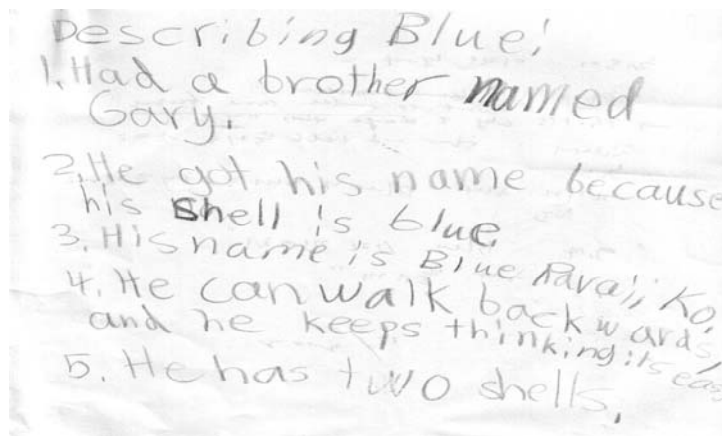 Describing Blue!
1. Had a brother named
Gary.
2. He got his name because
his shell is blue
3. His name is Blue Ko.
4. He can walk backwards,
and he keeps thinking its easy
5. He has two shells.